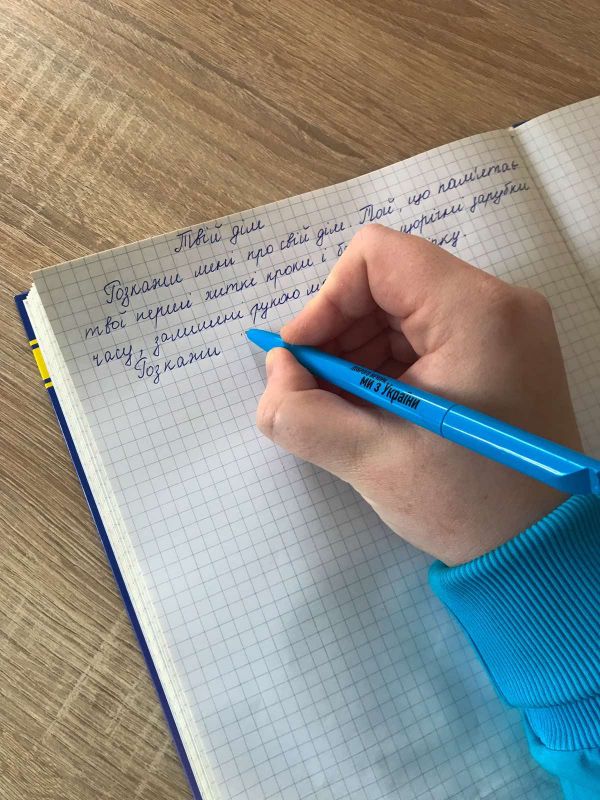 Твій дім
Розкажи мені про свій дім. Той, що памʼятає
твої перші хиткі кроки і щорічні зарубки
часу, залишені рукою
Розкажи
ми з України